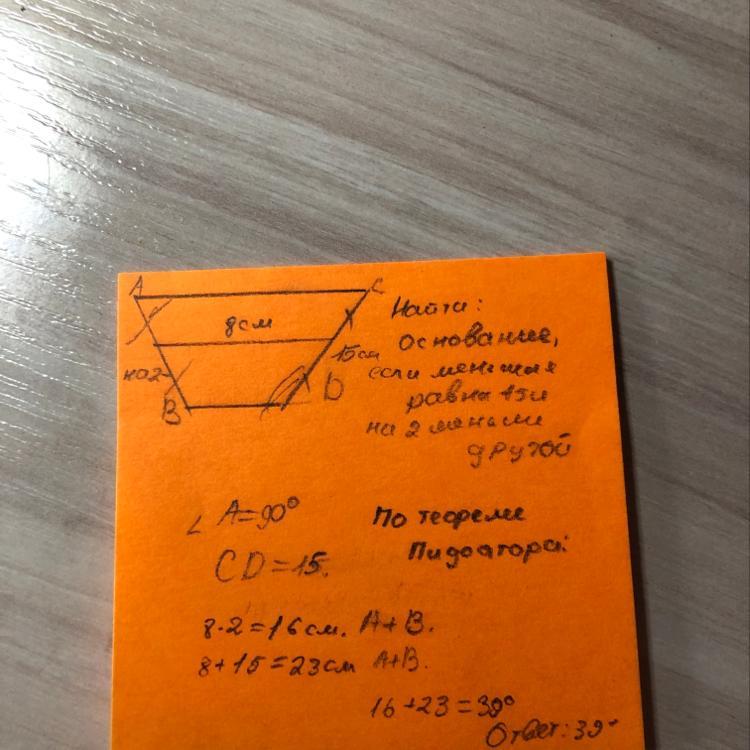 A C
8см
15см
на2
B D
Найти:
основание,
если меньшая
равна 15и
на 2 меньше
другой
∠ A=90°
CD=15.
По теореме
Пидоагора:
8·2=16см. A+B.
8+15=23см A+B.
16+23=39°
Ответ:39°